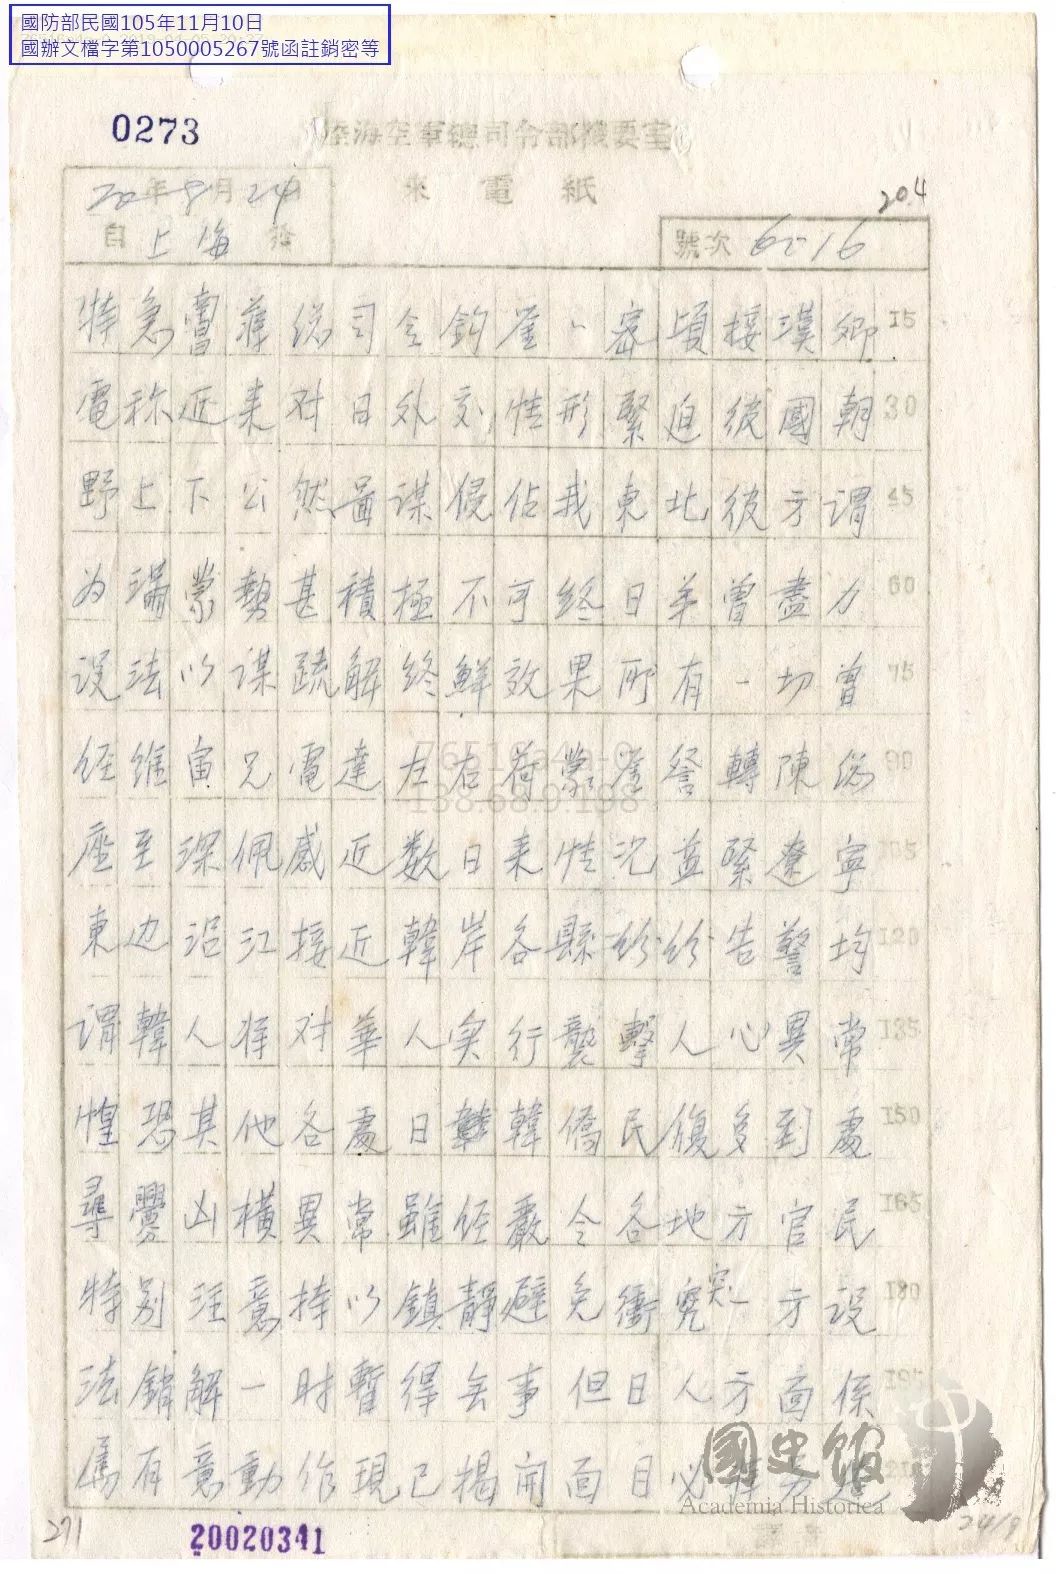 國防部民國105年11月10日
國辦文檔字第1050005267號函註銷密等
0273
陸海空軍總司令部機要室
來電紙
20年8月24日
20.4
自上海發
號次 6516
特急萬蔣總司令鈞鉴、密頃接漢卿 15
電称近来对日外交情形緊迫彼國朝 30
野上下公然啚谋侵佔我東北彼方谓 45
为滿蒙勢甚積極不可終日弟曾盡力 60
设法以谋疏解终鮮效果所有一切曾 75
经維宙兄電達左右荷蒙鉴詧轉陳總 90
座至深佩感近数日来情况益緊遼寧 105
東边沿江接近韓岸各縣紛紛告警均 120
谓韓人将对華人实行襲擊人心異常 135
惶恐其他各處日韓僑民復多到處 150
尋釁凶橫異常雖经嚴令各地方官民 165
特别注意持以鎮靜避免衝突一方设 180
法銷解一时暫得无事但日人方面係 195
属有意動作現已揭開面目必
國史館
Academia Historica
76510a4a-0
138.68.9.198
271
20020341
24/9